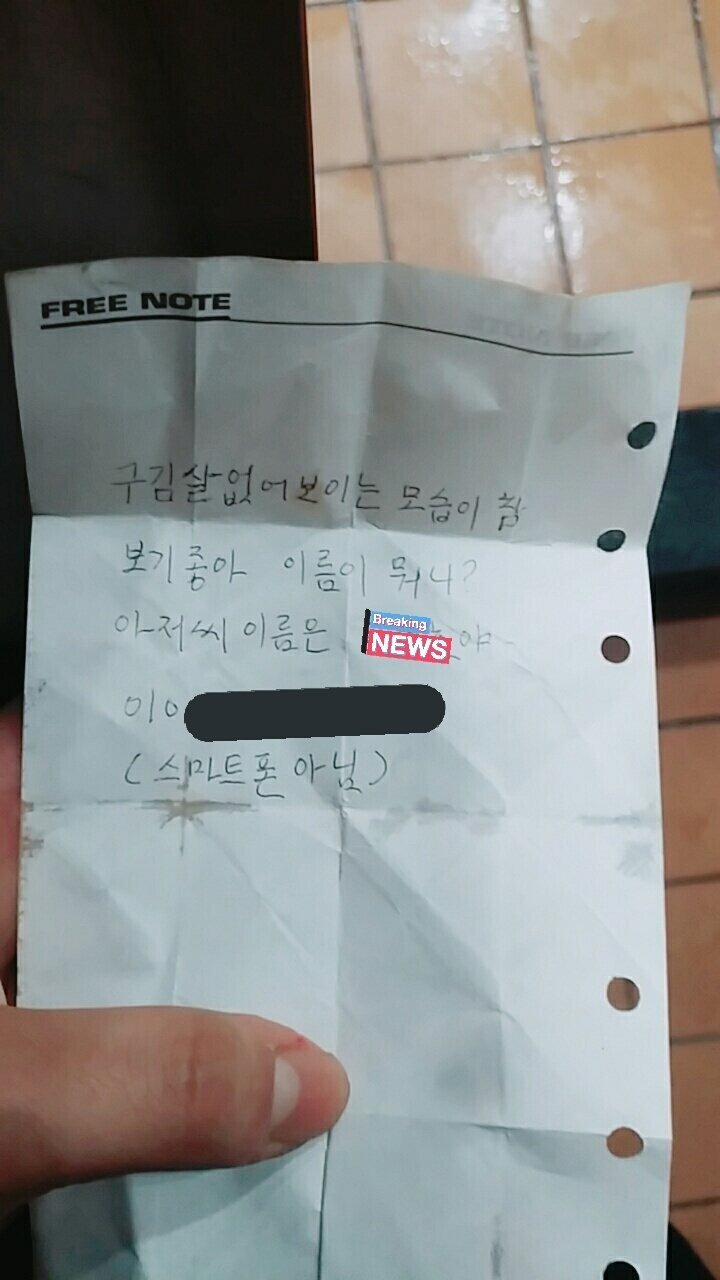 FREE NOTE
구김살없어보이는 모습이 참
보기좋아 이름이 뭐니?
아저씨 이름은 Breaking NEWS 야
010
(스마트폰 아님)